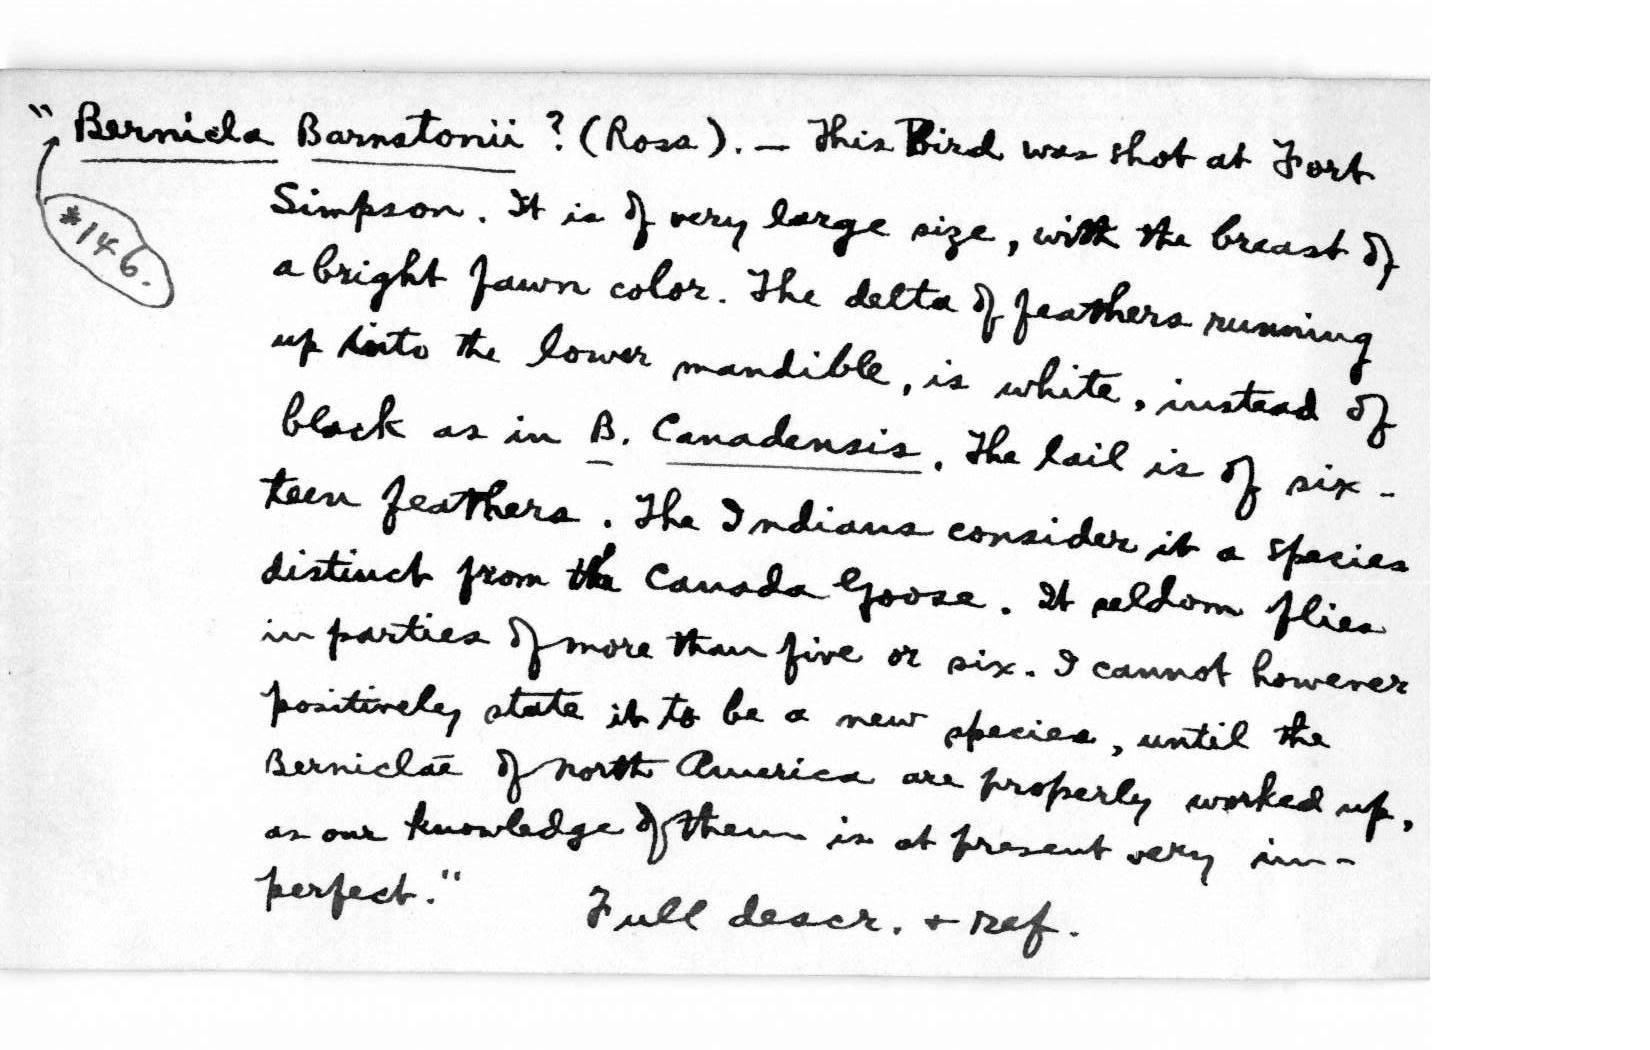 " Bernicla Barnstonii ? (Ross). — This Bird was shot at Fort
#146.
Simpson. It is of very large size, with the breast of
a bright fawn color. The delta of feathers running
up into the lower mandible, is white, instead of
black as in B. Canadensis. The tail is of six-
teen feathers. The Indians consider it a species
distinct from the Canada Goose. It seldom flies
in parties of more than five or six. I cannot however
positively state it to be a new species, until the
Berniclae of North America are properly worked up,
as our knowledge of them is at present very im-
perfect."
Full descr. + ref.